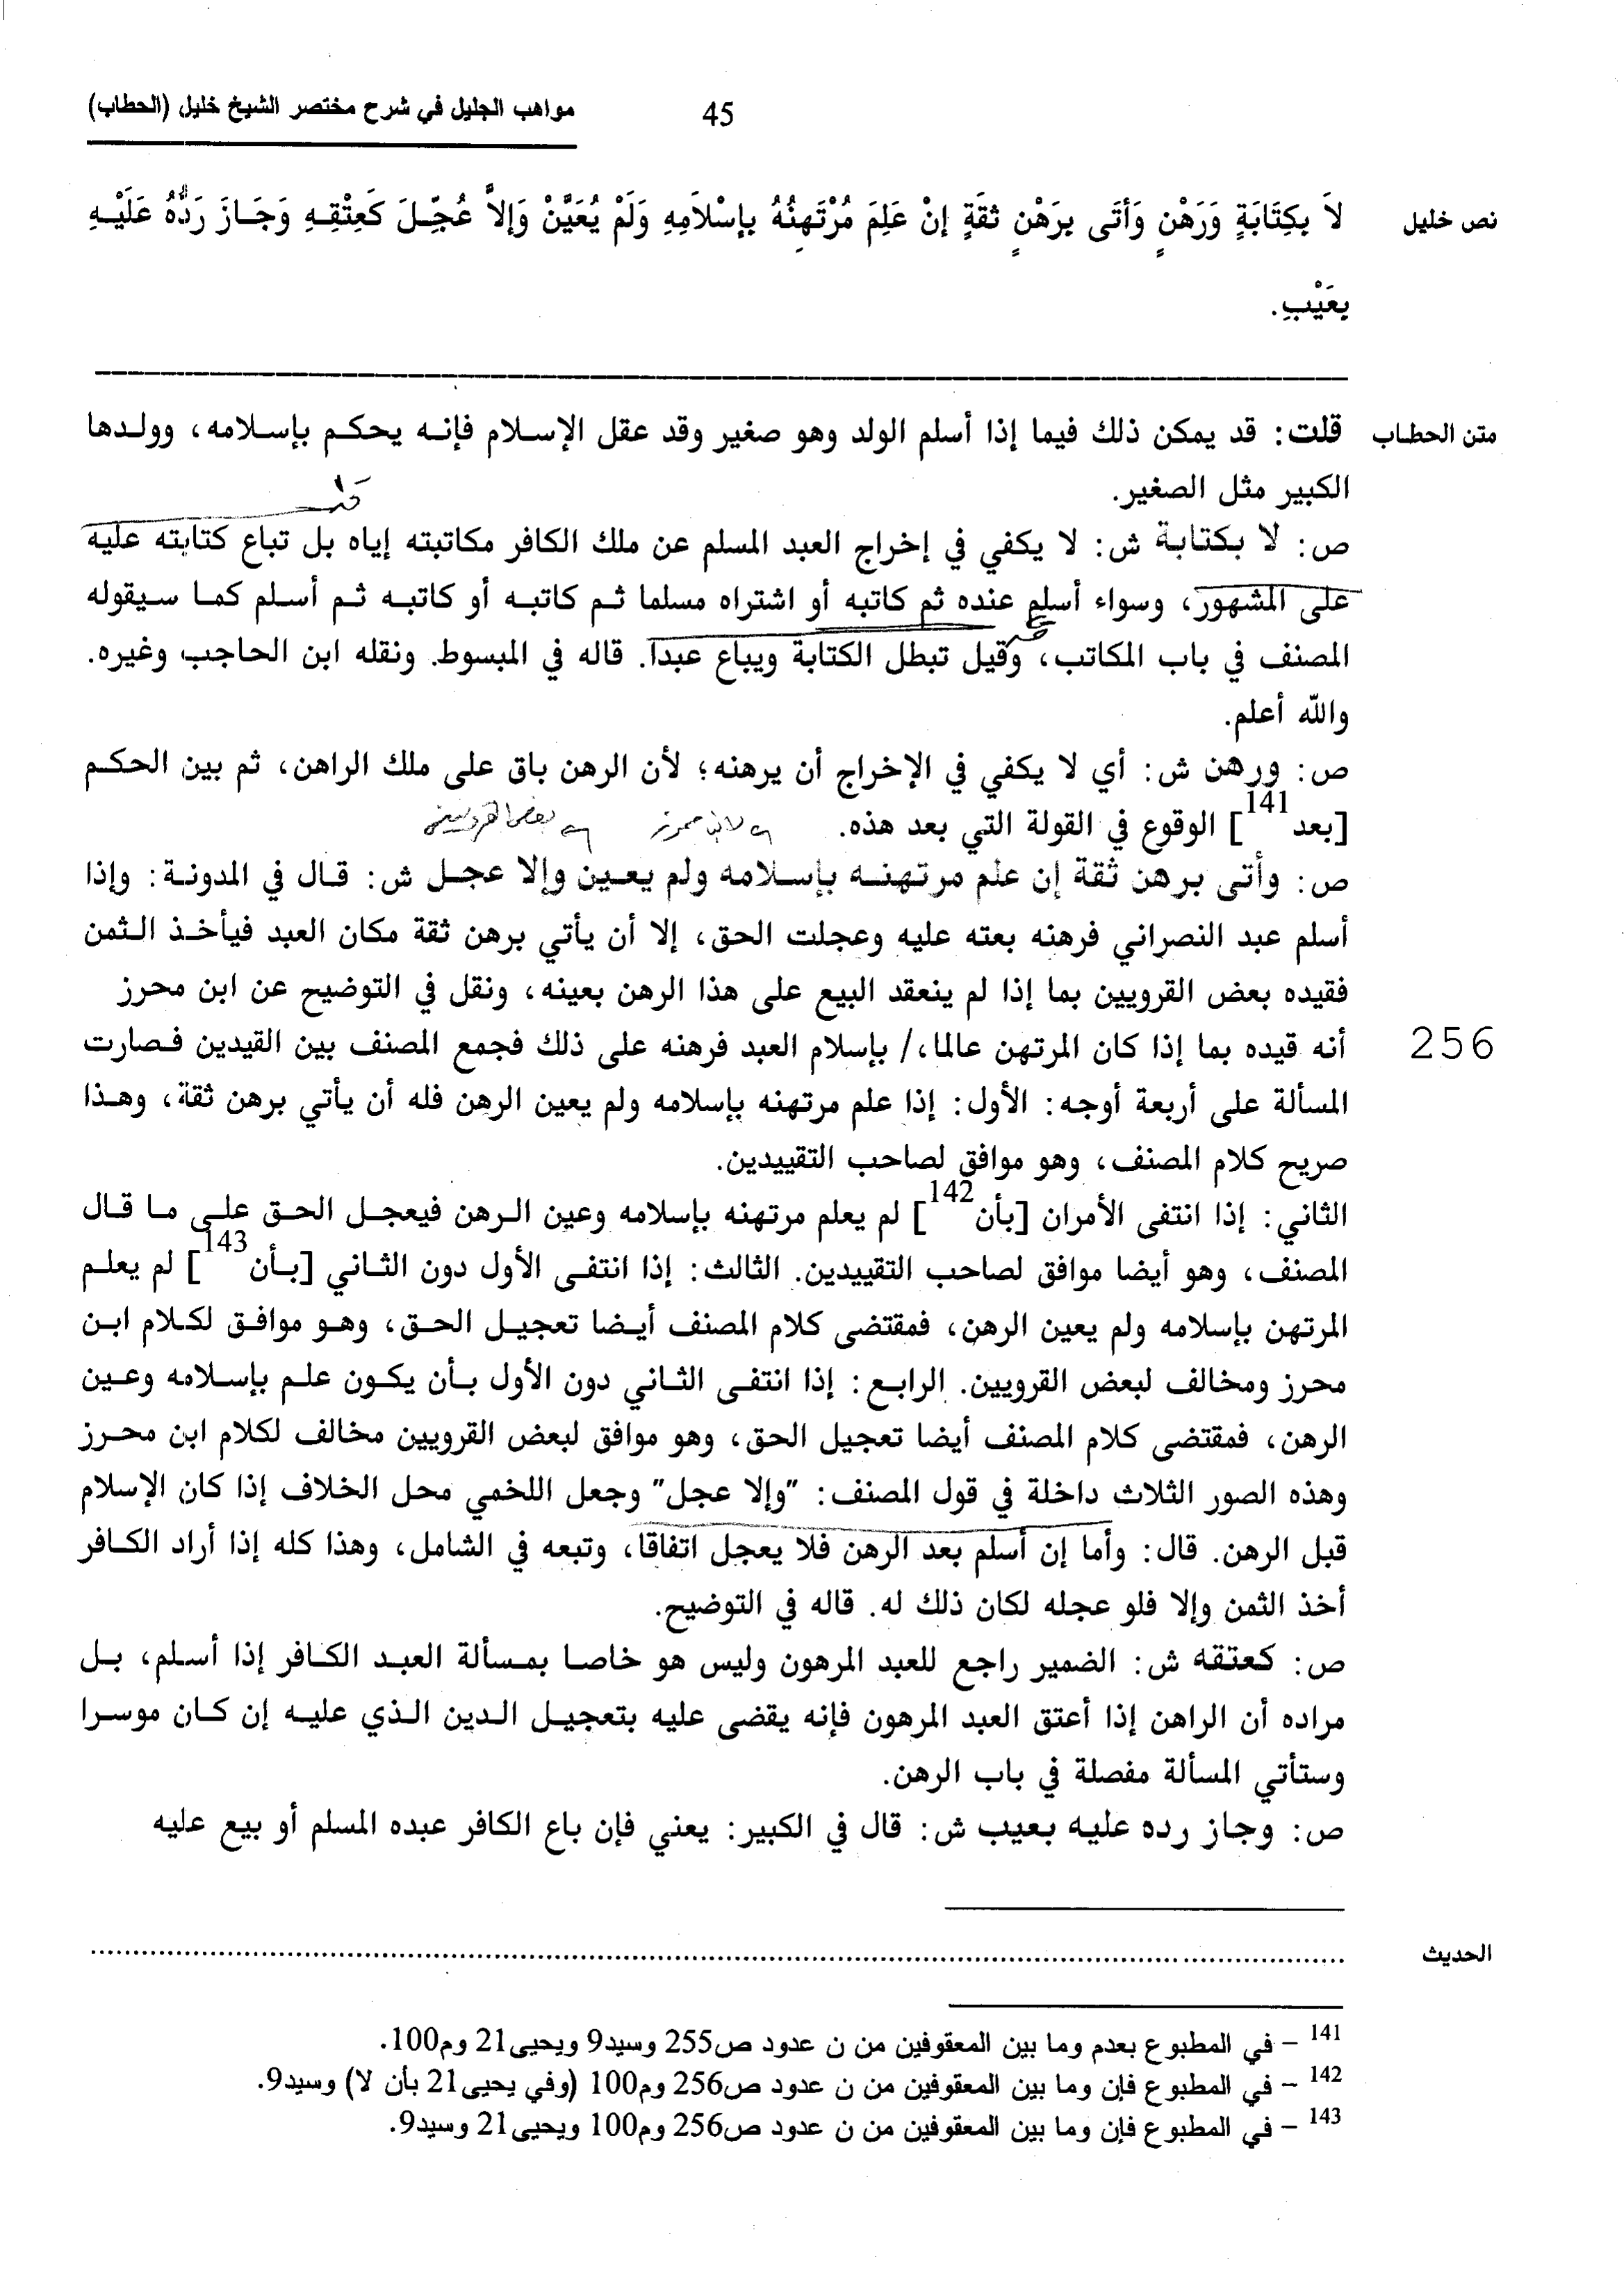 مواهب الجليل في شرح مختصر الشيخ خليل (الحطاب)
45
نص خليل
لاَ بِكِتَابَةٍ وَرَهْنٍ وَأتَى بِرَهْنٍ ثقَةٍ إنْ عَلِمَ مُرْتَهِنُهُ بِإسْلاَمِهِ وَلَمْ يُعَيَّنْ وَإلاَّ عُجِّلَ كَعِتْقِهِ وَجَازَ رَدُّهُ عَلَيْهِ
بِعَيْبٍ.
متن الحطاب
قلت: قد يمكن ذلك فيما إذا أسلم الولد وهو صغير وقد عقل الإسلام فإنه يحكم بإسلامه، وولدها
الكبير مثل الصغير.
ص: لا بكتابة ش: لا يكفي في إخراج العبد المسلم عن ملك الكافر مكاتبته إياه بل تباع كتابته عليه
على المشهور، وسواء أسلم عنده ثم كاتبه أو اشتراه مسلما ثم كاتبه أو كاتبه ثم أسلم كما سيقوله
المصنف في باب المكاتب، وقيل تبطل الكتابة ويباع عبدا. قاله في المبسوط. ونقله ابن الحاجب وغيره.
والله أعلم.
ص: ورهن ش: أي لا يكفي في الإخراج أن يرهنه؛ لأن الرهن باق على ملك الراهن، ثم بين الحكم
[بعد141] الوقوع في القولة التي بعد هذه.
ص: وأتى برهن ثقة إن علم مرتهنه بإسلامه ولم يعين وإلا عجل ش: قال في المدونة: وإذا
أسلم عبد النصراني فرهنه بعته عليه وعجلت الحق، إلا أن يأتي برهن ثقة مكان العبد فيأخذ الثمن
فقيده بعض القرويين بما إذا لم ينعقد البيع على هذا الرهن بعينه، ونقل في التوضيح عن ابن محرز
256
أنه قيده بما إذا كان المرتهن عالما،/ بإسلام العبد فرهنه على ذلك فجمع المصنف بين القيدين فصارت
المسألة على أربعة أوجه: الأول: إذا علم مرتهنه بإسلامه ولم يعين الرهن فله أن يأتي برهن ثقة، وهذا
صريح كلام المصنف، وهو موافق لصاحب التقييدين.
الثاني: إذا انتفى الأمران [بأن142] لم يعلم مرتهنه بإسلامه وعين الرهن فيعجل الحق على ما قال
المصنف، وهو أيضا موافق لصاحب التقييدين. الثالث: إذا انتفى الأول دون الثاني [بأن143] لم يعلم
المرتهن بإسلامه ولم يعين الرهن، فمقتضى كلام المصنف أيضا تعجيل الحق، وهو موافق لكلام ابن
محرز ومخالف لبعض القرويين. الرابع: إذا انتفى الثاني دون الأول بأن يكون علم بإسلامه وعين
الرهن، فمقتضى كلام المصنف أيضا تعجيل الحق، وهو موافق لبعض القرويين مخالف لكلام ابن محرز
وهذه الصور الثلاث داخلة في قول المصنف: "وإلا عجل" وجعل اللخمي محل الخلاف إذا كان الإسلام
قبل الرهن. قال: وأما إن أسلم بعد الرهن فلا يعجل اتفاقا، وتبعه في الشامل، وهذا كله إذا أراد الكافر
أخذ الثمن وإلا فلو عجله لكان ذلك له. قاله في التوضيح.
ص: كعتقه ش: الضمير راجع للعبد المرهون وليس هو خاصا بمسألة العبد الكافر إذا أسلم، بل
مراده أن الراهن إذا أعتق العبد المرهون فإنه يقضى عليه بتعجيل الدين الذي عليه إن كان موسرا
وستأتي المسألة مفصلة في باب الرهن.
ص: وجاز رده عليه بعيب ش: قال في الكبير: يعني فإن باع الكافر عبده المسلم أو بيع عليه
الحديث
141 – في المطبوع بعدم وما بين المعقوفين من ن عدود ص255 وسيد9 ويحيى21 وم100.
142 – في المطبوع فإن وما بين المعقوفين من ن عدود ص256 وم100 (وفي يحيى21 بأن لا) وسيد9.
143 – في المطبوع فإن وما بين المعقوفين من ن عدود ص256 وم100 ويحيى21 وسيد9.